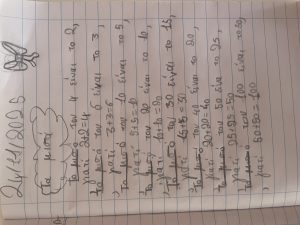 24/11/2025
Τα μισά
Το μισό του 4 είναι το 2,
γιατί 2+2=4
Το μισό του 6 είναι το 3,
γιατί 3+3=6
Το μισό του 10 είναι το 5,
γιατί 5+5=10
Το μισό του 20 είναι το 10,
γιατί 10+10=20
Το μισό του 30 είναι το 15,
γιατί 15+15=30
Το μισό του 40 είναι το 20,
γιατί 20+20=40
Το μισό του 50 είναι το 25,
γιατί 25+25=50
Το μισό του 100 είναι το 50,
γιατί 50+50=100